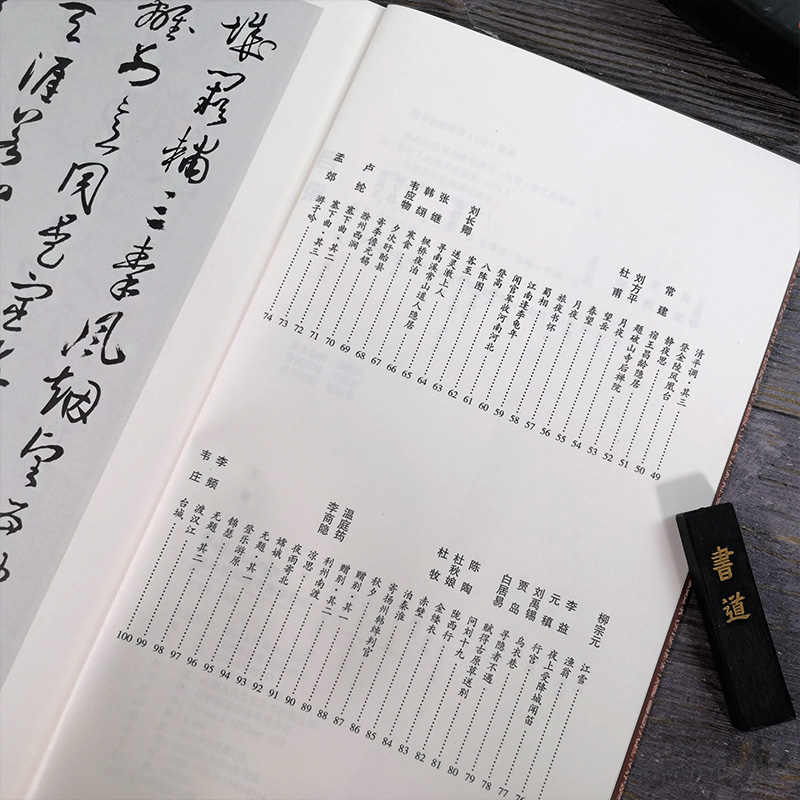 城阙辅三秦风烟望五
别意同是宦
天涯若比
清平调·其三 49
登金陵凤凰台 50
静夜思 51
常建 宿王昌龄隐居 52
题破山寺后禅院 53
刘方平 月夜 54
杜甫 望岳 55
春望 56
月夜 57
旅夜书怀 58
蜀相 59
江南逢李龟年 60
闻官军收河南河北 61
登高 62
八阵图 63
客至 64
刘长卿 送灵澈上人 65
寻南溪常山道人隐居 66
张继 枫桥夜泊 67
韩翃 寒食 68
韦应物 夕次盱眙县 69
寄李儋元锡 70
滁州西涧 71
卢纶 塞下曲·其二 72
塞下曲·其三 73
孟郊 游子吟 74
柳宗元 江雪
渔翁 76
李益 夜上受降城闻笛 77
元稹 行宫 78
刘禹锡 乌衣巷 79
贾岛 寻隐者不遇 80
白居易 赋得古原草送别 81
问刘十九 82
陈陶 陇西行 83
杜秋娘 金缕衣 84
杜牧 赤壁 85
泊秦淮 86
寄扬州韩绰判官 87
秋夕 88
赠别·其一 89
赠别·其二 90
温庭筠 利州南渡 91
李商隐 凉思 92
夜雨寄北 93
嫦娥 94
无题·其一 95
登乐游原 96
锦瑟 97
无题·其二 98
李频 渡汉江 99
韦庄 台城 100
書道